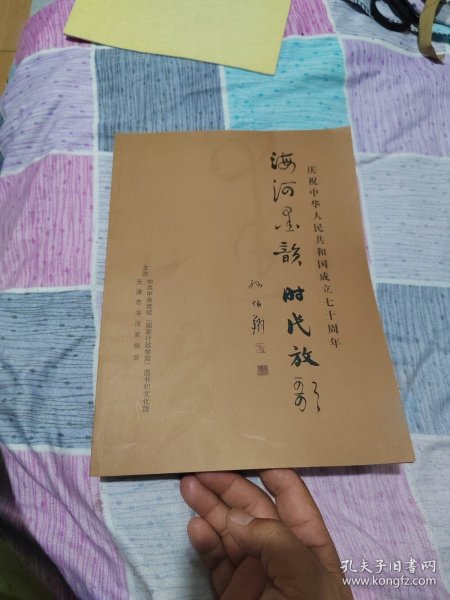 庆祝中华人民共和国成立七十周年
海河墨韵
时代放歌
孙伯翔
主办 中共中央党校（国家行政学院）图书和文化馆
天津市书法家协会
孔夫子旧书网
www.kongfz.com